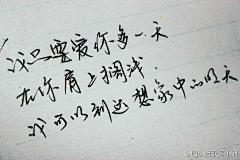 我只要爱你多一天
在你肩上搁浅.
我可以到达想象中的明天